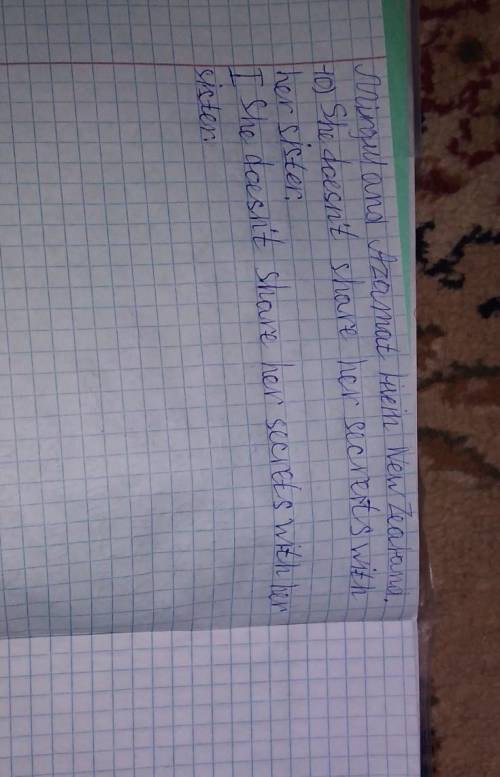 and Azamat in New Zealand.
10) She doesn't share her secrets with
her sister.
I She doesn't share her secrets with her
sister.